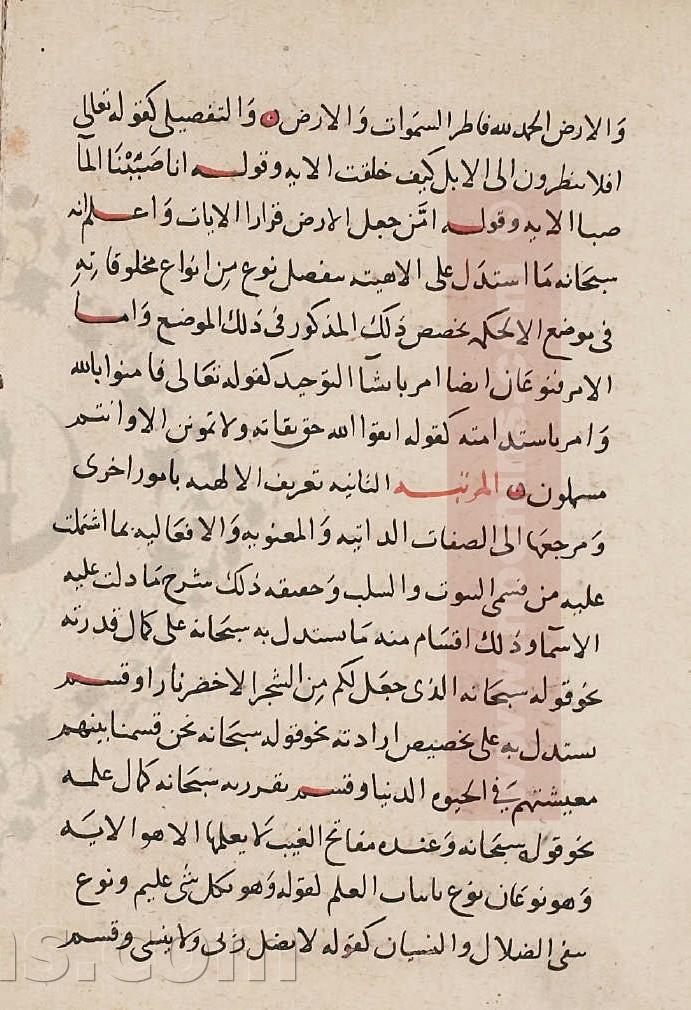 والارض الحمد لله فاطر السموات والارض والتفصيلي كقوله تعالى
افلا ينظرون الى الابل كيف خلقت الايه وقوله انا صببنا المآ
صبا الايه وقوله امن جعل الارض قرارا الايات واعلم انه
سبحانه ما استدل على الاهيته بمفصل نوع من انواع مخلوقاته
في موضع الا لحكمه تخصص ذلك المذكور في ذلك الموضع واما
الامر فنوعان ايضا امر بانشآ التوحيد كقوله تعالى فامنوا بالله
وامر باستدامته كقوله اتقوا الله حق تقاته ولا تموتن الا وانتم
مسلمون المرتبه الثانيه تعريف الالهيه بامور اخرى
ومرجعها الى الصفات الذاتيه والمعنويه والافعاليه بما اشتملت
عليه من قسمي الثبوت والسلب وحقيقه ذلك شرح ما دلت عليه
الاسما وذلك اقسام منه ما يستدل به سبحانه على كمال قدرته
نحو قوله سبحانه الذي جعل لكم من الشجر الاخضر نارا وقسم
يستدل به على تخصيص ارادته نحو قوله سبحانه نحن قسمنا بينهم
معيشتهم في الحيوه الدنيا وقسم يقرر به سبحانه كمال علمه
نحو قوله سبحانه وعنده مفاتح الغيب لا يعلمها الا هو الايه
وهو نوعان نوع باثبات العلم لقوله وهو بكل شي عليم ونوع
بنفي الضلال والنسيان كقوله لا يضل ربي ولا ينسى وقسم